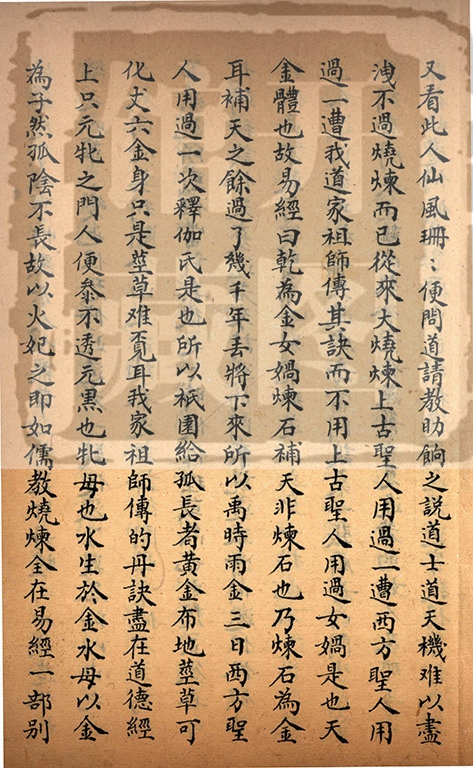 又看此人仙風珊〻便問道請教助餉之説道士道天機难以盡
洩不過燒煉而已從來大燒煉上古聖人用過一遭西方聖人用
過一遭我道家祖師傳其訣而不用上古聖人用過女媧是也天
金體也故易經曰乾為金女媧煉石補天非煉石也乃煉石為金
耳補天之餘過了幾千年丢將下來所以禹時雨金三日西方聖
人用過一次釋伽氏是也所以祇園給孤長者黄金布地莖草可
化丈六金身只是莖草难覔耳我家祖師傳的丹訣盡在道德經
上只元牝之門人便叅不透元黒也牝母也水生於金水母以金
為子然孤陰不長故以火妃之即如儒教燒煉全在易經一部别